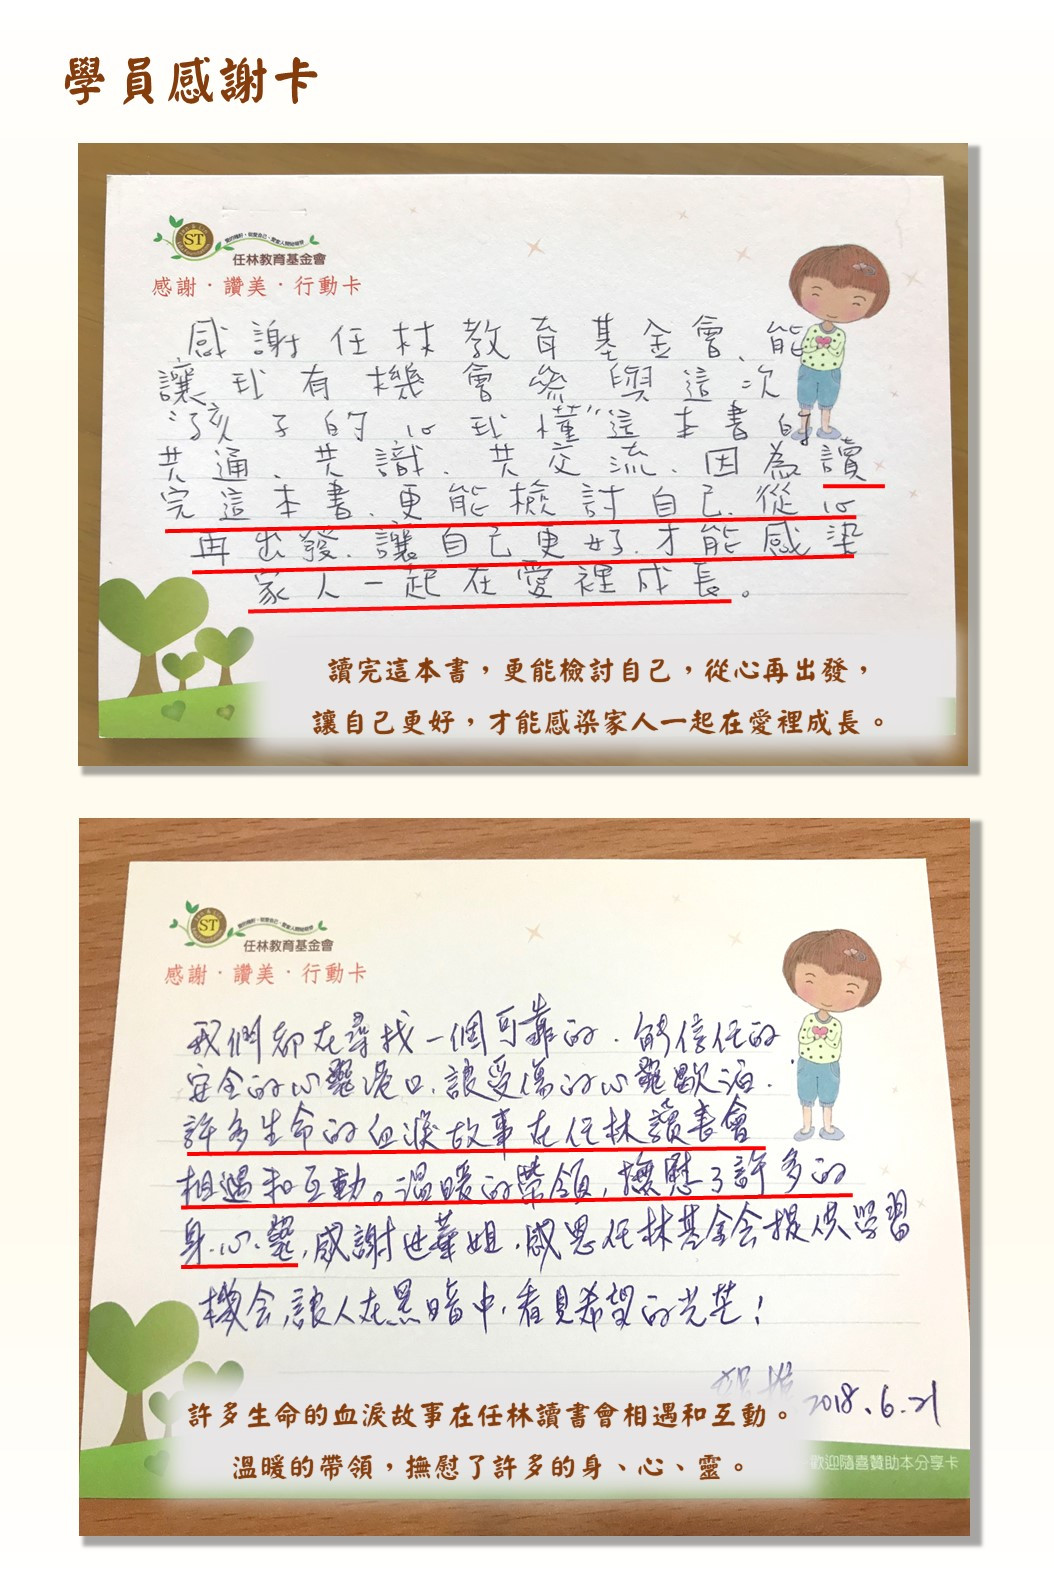 學員感謝卡
ST
任林教育基金會
感謝・讚美・行動卡
感謝任林教育基金會、能
讓我有機會參與這次
"孩子的心我懂"這本書的
共通、共識、共交流、因為讀
完這本書、更能檢討自己、從心
再出發、讓自己更好、才能感染
家人一起在愛裡成長。
讀完這本書，更能檢討自己，從心再出發，
讓自己更好，才能感染家人一起在愛裡成長。
ST
任林教育基金會
感謝・讚美・行動卡
我們都在尋找一個可靠的、能信任的
安全的心靈港口、讓受傷的心靈歇泊.
許多生命的血淚故事在任林讀書會
相遇和互動。溫暖的帶領，撫慰了許多的
身、心、靈，感謝 華姐，感恩任林基金会提供学習
機会，讓人在黑暗中，看見希望的光芒！
2018.6.21
許多生命的血淚故事在任林讀書會相遇和互動。
溫暖的帶領，撫慰了許多的身、心、靈。
歡迎隨喜贊助本分享卡